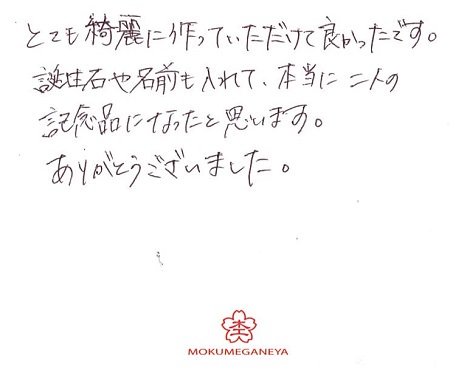 とても綺麗に作っていただけて良かったです。
誕生石や名前も入れて、本当に二人の
記念品になったと思います。
ありがとうございました。
杢
MOKUMEGANEYA